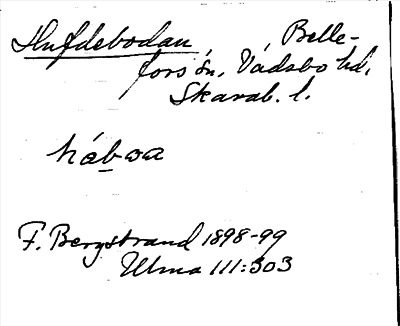 Hufdebodan, Belle-
fors sn, Vadsbo hd,
Skarab. l.
F. Bergstrand 1898-99
Ulma 111:303